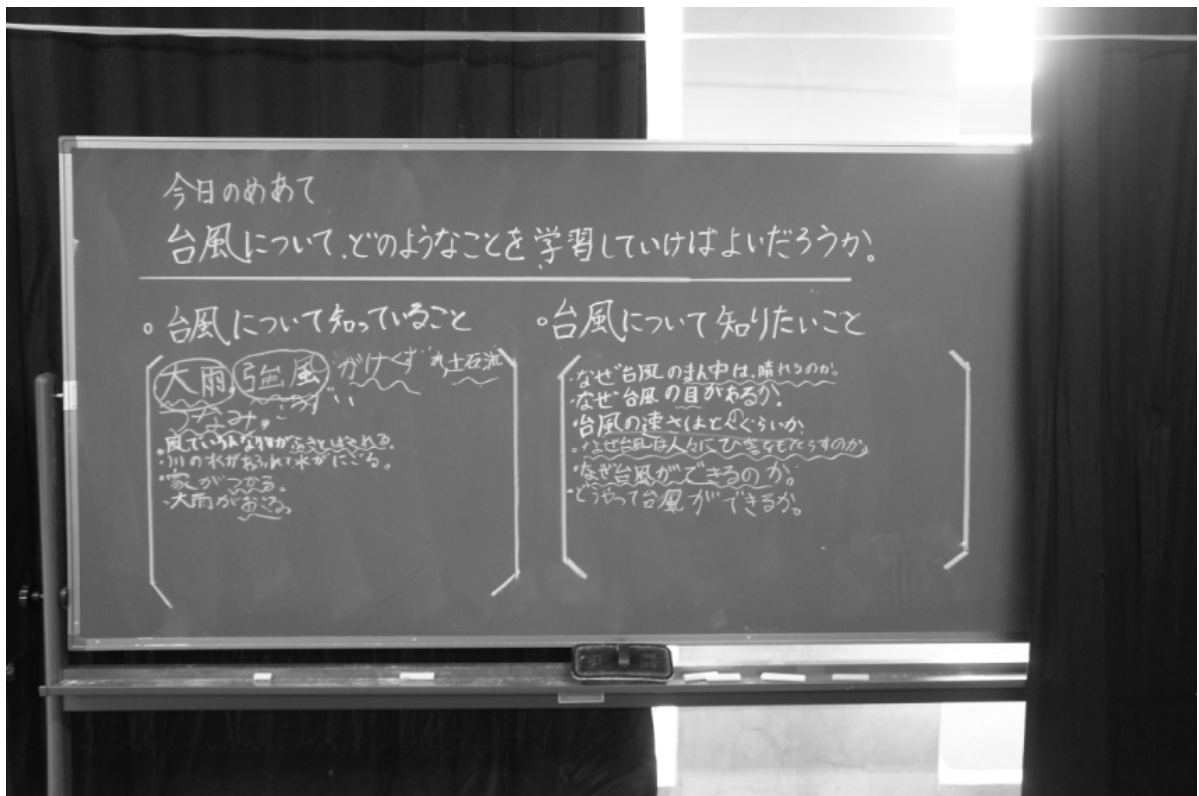 今日のめあて
台風について、どのようなことを学習していけばよいだろうか。
○台風について知っていること
大雨、強風 がけくずれ、土石流
つなみ、こうずい
・風でいろんな物がふきとばされる。
・川の水があふれて水がにごる。
・家がつかる。
・大雨がおこる。
○台風について知りたいこと
・なぜ台風のまん中は、晴れるのか。
・なぜ台風の目があるか。
・台風の速さはどんぐらいか
・なぜ台風は人々にひ害をもたらすのか。
・なぜ台風ができるのか。
・どうやって台風ができるか。